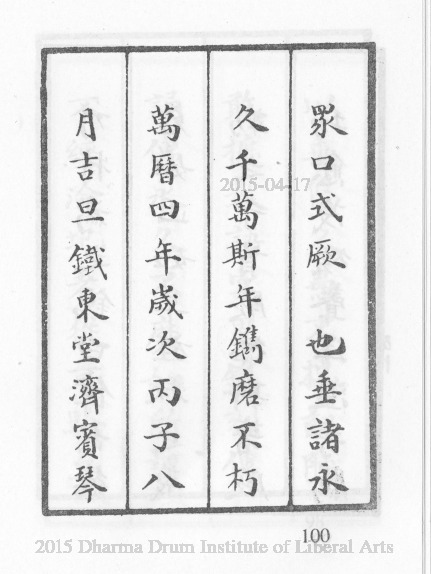 眾口式厥　也垂諸永
久千萬斯年鐫磨不朽
萬曆四年歲次丙子八
月吉旦鐵東堂濟賓琴
2015-04-17
100
2015 Dharma Drum Institute of Liberal Arts